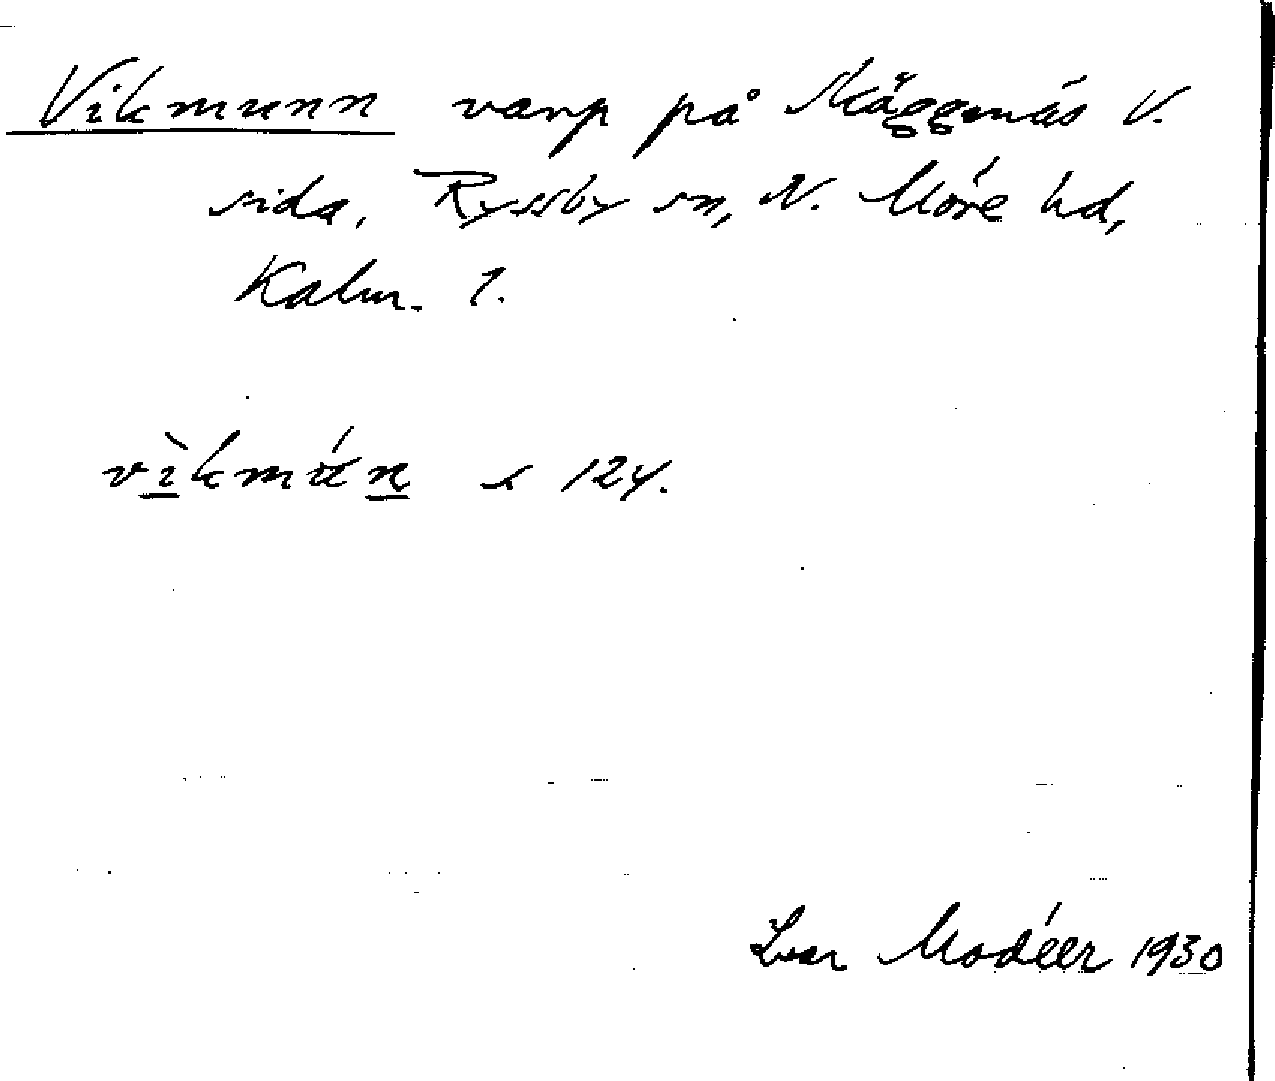 Vikmunn varp på Skäggenäs V.
sida, Ryssby sn, N. Möre hd,
Kalm. l.
vìkmún s 124.
Ivar Modéer 1930